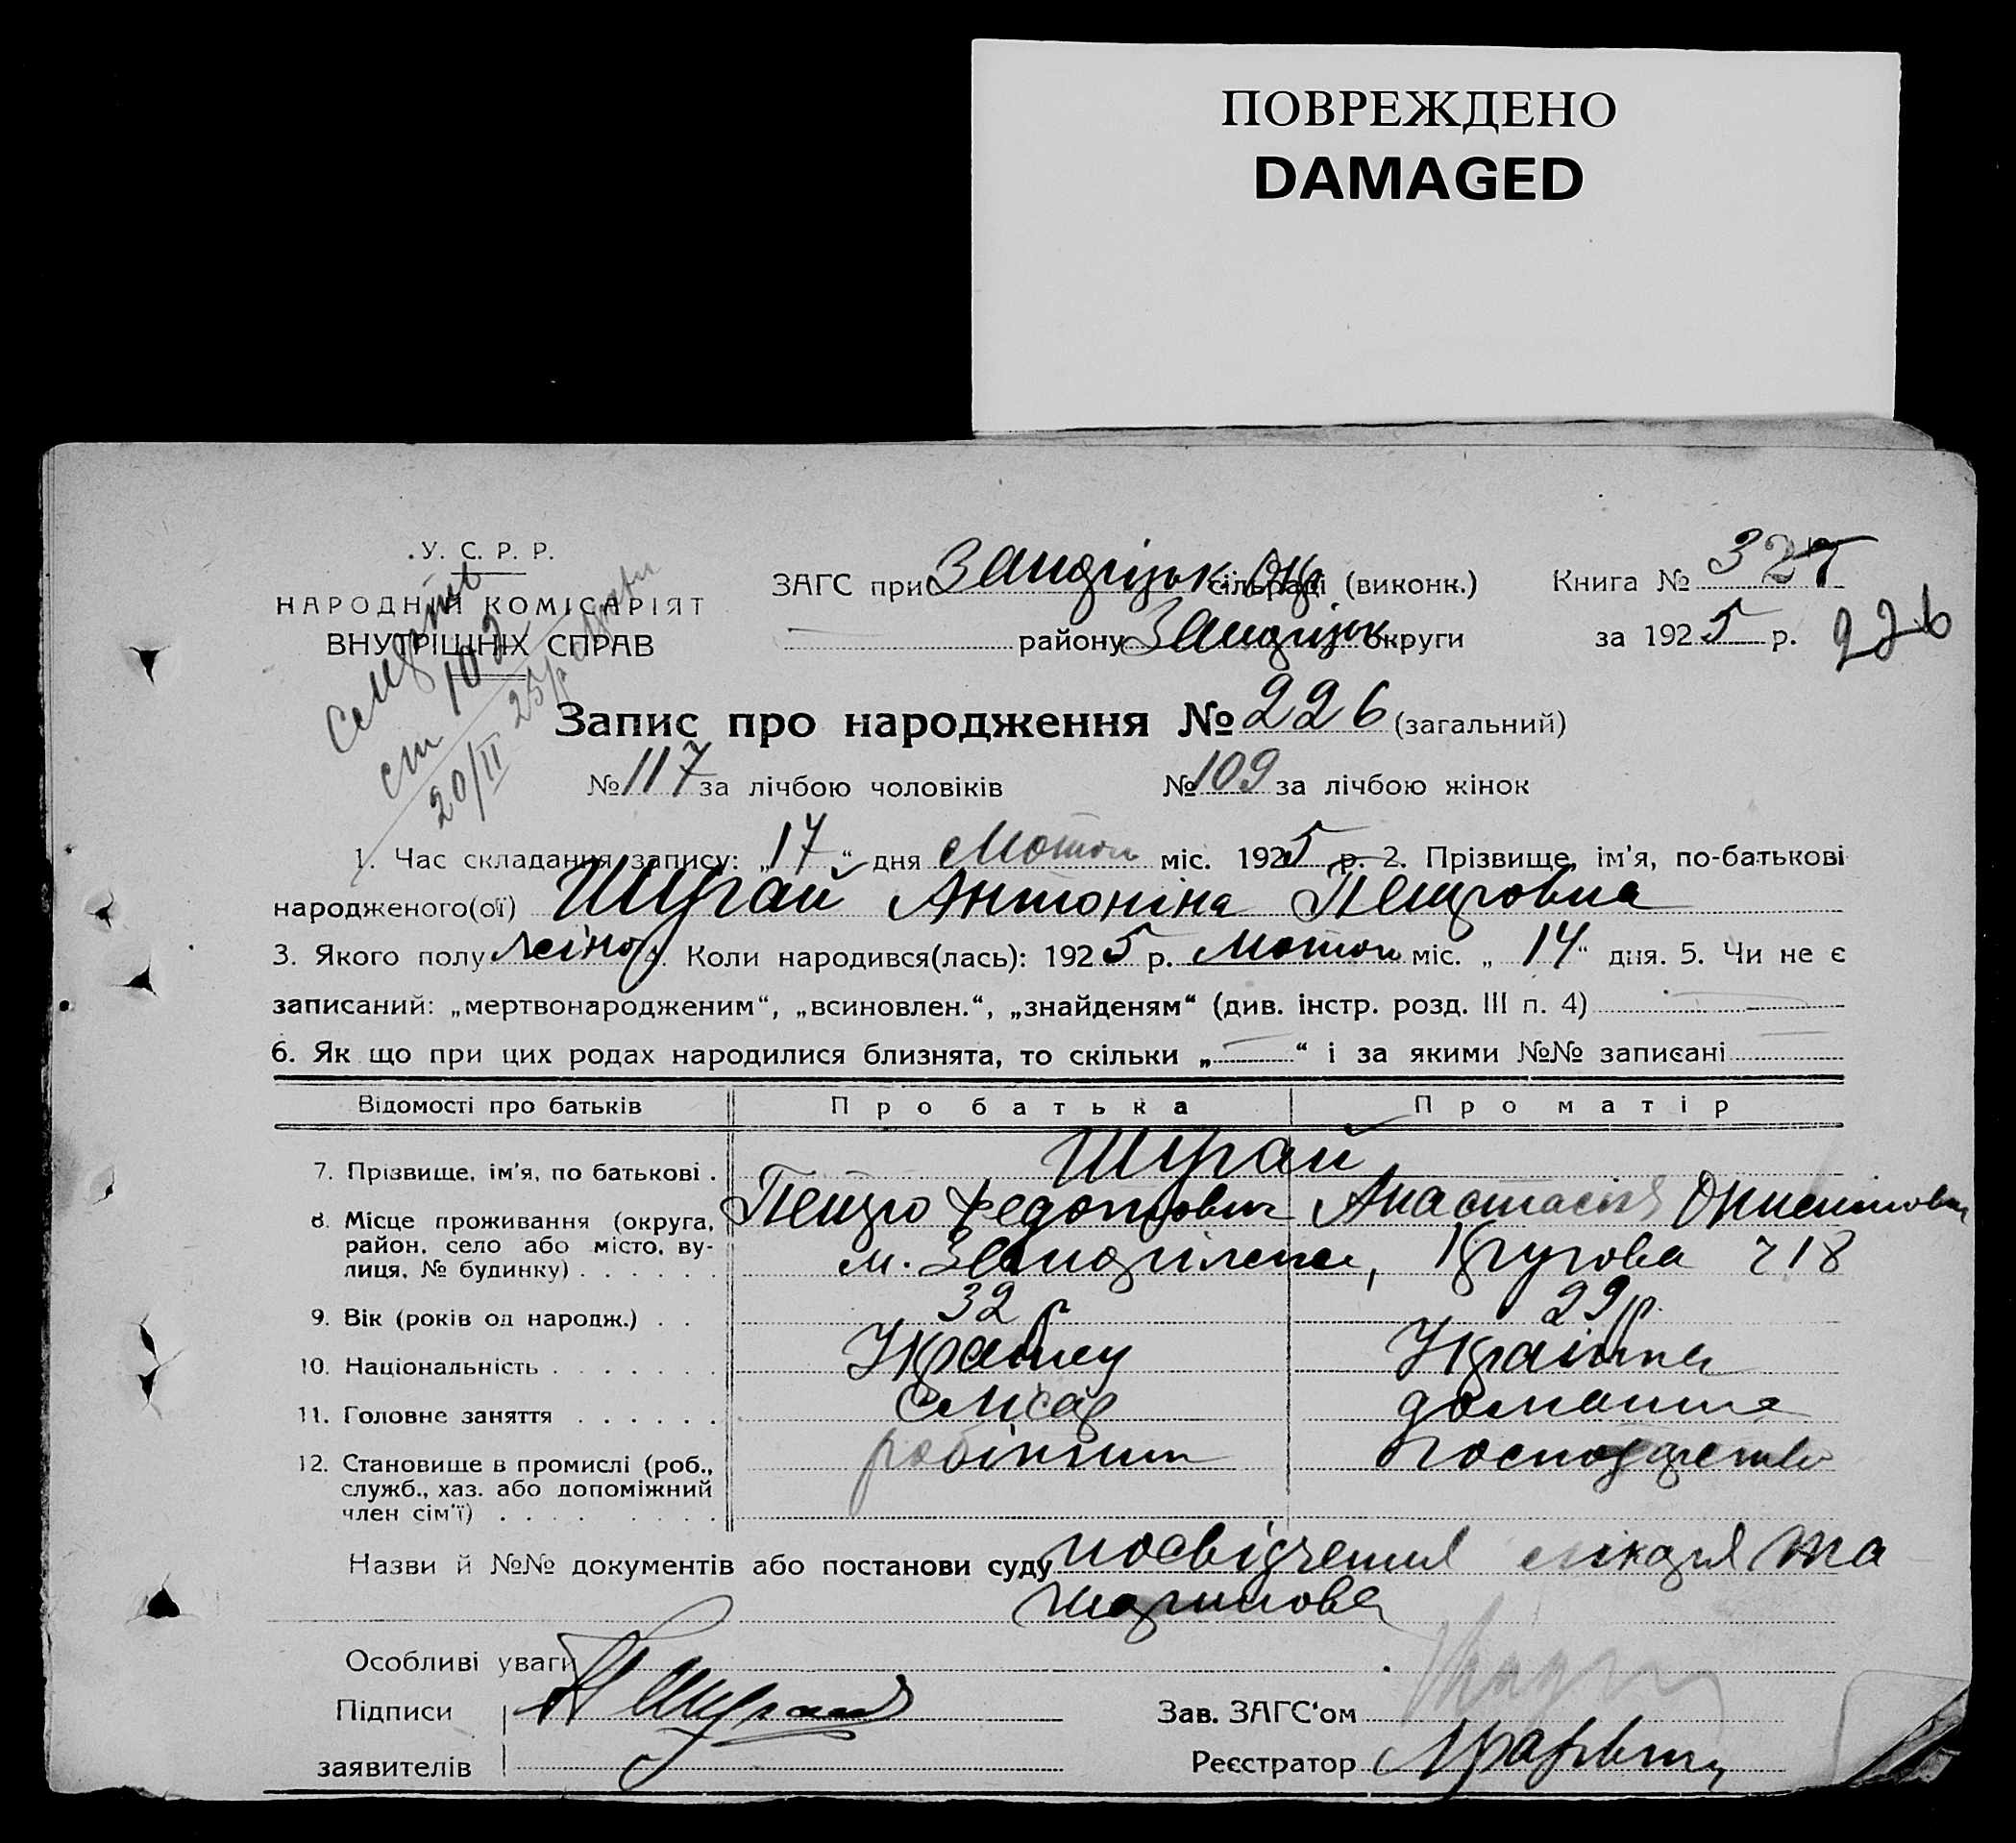 ПОВРЕЖДЕНО
DAMAGED
У. С. Р. Р.
НАРОДНИЙ КОМІСАРІЯТ
ВНУТРІШНІХ СПРАВ
ст 102
20/II 25р
ЗАГС при сільраді (виконк.)
району округи
Книга № 327
за 1925 р. 226
Запис про народження № 226 (загальний)
№ 117 за лічбою чоловіків № 109 за лічбою жінок
1. Час складання запису: „17“ дня Лютого міс. 1925 р. 2. Прізвище, ім'я, по-батькові
народженого(ої) Шурай Антоніна Петровна
3. Якого полу жіноч. 4. Коли народився(лась): 1925 р. Лютого міс. „14“ дня. 5. Чи не є
записаний: „мертвонародженим“, „всиновлен.“, „знайденям“ (див. інстр. розд. III п. 4)
6. Як що при цих родах народилися близнята, то скільки „—“ і за якими №№ записані
Відомості про батьків Про батька Про матір
7. Прізвище, ім'я, по батькові . Шурай
Петро Федотович Анастасія
8. Місце проживання (округа, район, село або місто, вулиця, № будинку) . . . . . . м. , Кругова ч 18
9. Вік (років од народж.) . . 32 р 29 р.
10. Національність . . . . . . . Українец Українка
11. Головне заняття . . . . . . слюсар домашнє
12. Становище в промислі (роб., служб., хаз. або допоміжний член сім'ї) . . . . . . . . робітник господарство
Назви й №№ документів або постанови суду посвідчення лікаря та
Особливі уваги
Підписи Шурай Зав. ЗАГС'ом
заявителів Реєстратор